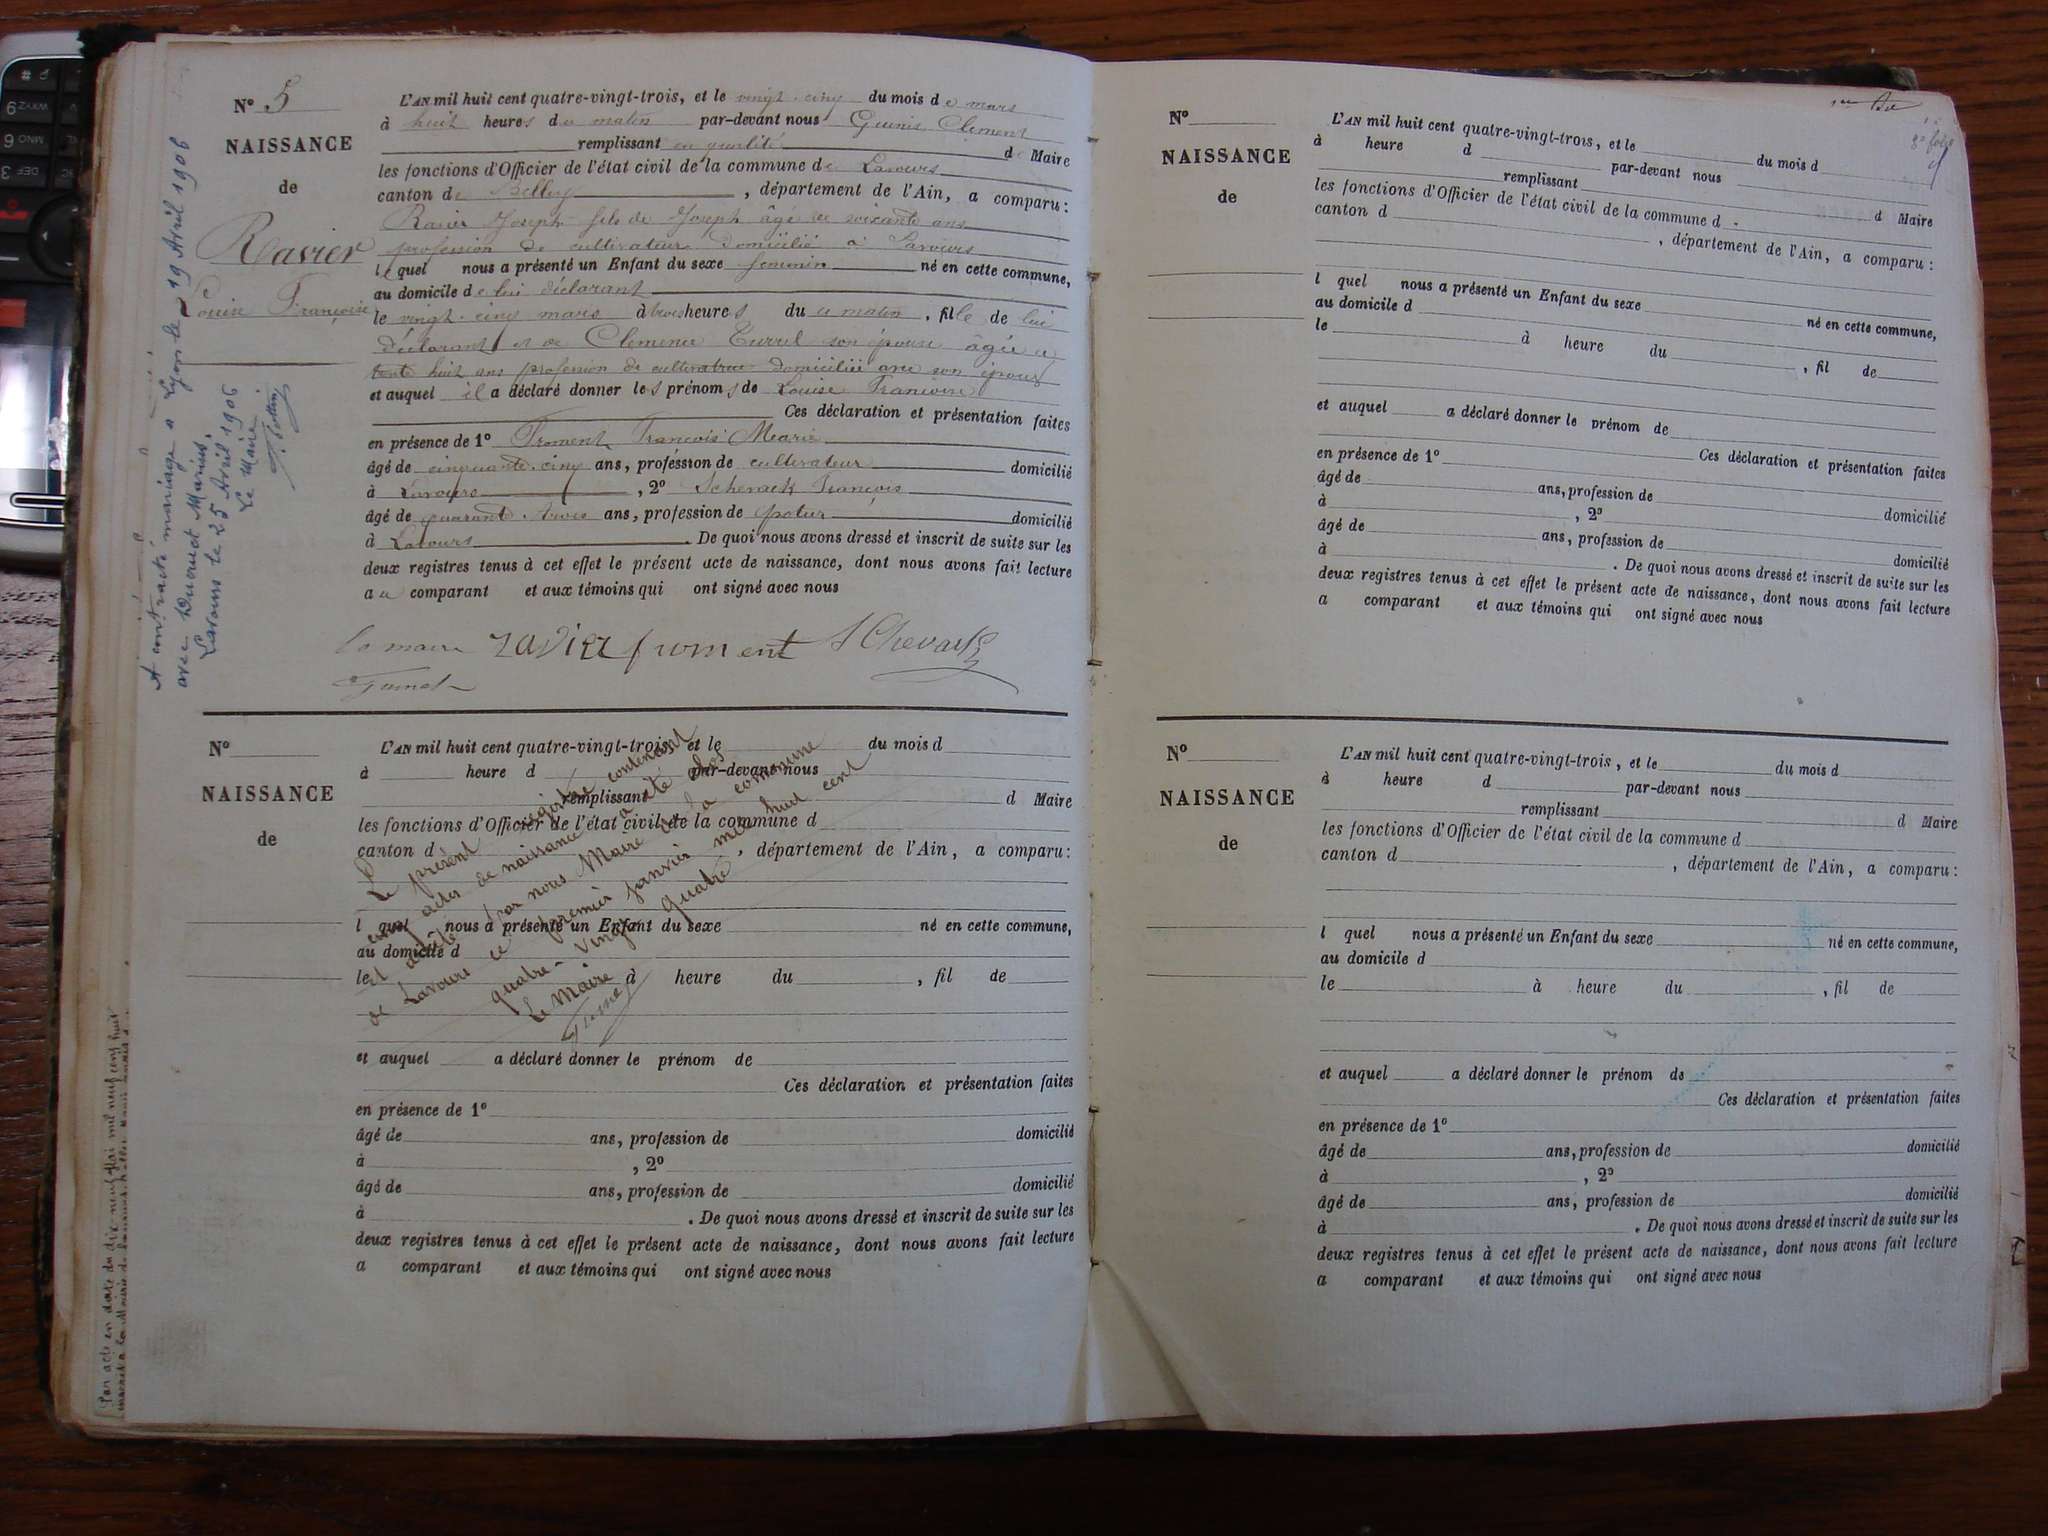 N° 5
NAISSANCE
de
Ravier
Louise Françoise
L'AN mil huit cent quatre-vingt-trois, et le vingt-cinq du mois de mars
à huit heures du matin par-devant nous Clément
remplissant en qualité de Maire
les fonctions d'Officier de l'état civil de la commune de Lavours
canton de Belley, département de l'Ain, a comparu:
Ravier Joseph fils de Joseph âgé de soixante ans
profession de cultivateur domicilié à Lavours
lequel nous a présenté un Enfant du sexe féminin né en cette commune,
au domicile de lui déclarant
le vingt-cinq mars à trois heures du matin, fille de lui
déclarant et de Clémence son épouse âgée de
trente huit ans profession de cultivatrice domiciliée avec son époux
et auquel il a déclaré donner les prénoms de Louise Françoise
Ces déclaration et présentation faites
en présence de 1° Froment François Marie
âgé de cinquante-cinq ans, profession de cultivateur domicilié
à Lavours, 2° François
âgé de quarante-trois ans, profession de domicilié
à Lavours. De quoi nous avons dressé et inscrit de suite sur les
deux registres tenus à cet effet le présent acte de naissance, dont nous avons fait lecture
au comparant et aux témoins qui ont signé avec nous
le maire ravier froment
A contracté mariage à Lyon le 19 Avril 1906
avec Ducruet Marius.
Lavours le 25 Avril 1906
Le Maire
N°
NAISSANCE
de
L'AN mil huit cent quatre-vingt-trois, et le du mois d
à heure d par-devant nous
remplissant d Maire
les fonctions d'Officier de l'état civil de la commune d
canton d , département de l'Ain, a comparu:
l quel nous a présenté un Enfant du sexe né en cette commune,
au domicile d
le à heure du , fil de
et auquel a déclaré donner le prénom de
Ces déclaration et présentation faites
en présence de 1°
âgé de ans, profession de domicilié
à , 2°
âgé de ans, profession de domicilié
à . De quoi nous avons dressé et inscrit de suite sur les
deux registres tenus à cet effet le présent acte de naissance, dont nous avons fait lecture
a comparant et aux témoins qui ont signé avec nous
Le présent registre contenant
cinq actes de naissance a été clos
et arrêté par nous Maire de la commune
de Lavours ce premier janvier mil huit cent
quatre-vingt quatre
Le Maire
Par acte en date du dix neuf Mai mil neuf cent huit
N°
NAISSANCE
de
L'AN mil huit cent quatre-vingt-trois, et le du mois d
à heure d par-devant nous
remplissant d Maire
les fonctions d'Officier de l'état civil de la commune d
canton d , département de l'Ain, a comparu:
l quel nous a présenté un Enfant du sexe né en cette commune,
au domicile d
le à heure du , fil de
et auquel a déclaré donner le prénom de
Ces déclaration et présentation faites
en présence de 1°
âgé de ans, profession de domicilié
à , 2°
âgé de ans, profession de domicilié
à . De quoi nous avons dressé et inscrit de suite sur les
deux registres tenus à cet effet le présent acte de naissance, dont nous avons fait lecture
a comparant et aux témoins qui ont signé avec nous
N°
NAISSANCE
de
L'AN mil huit cent quatre-vingt-trois, et le du mois d
à heure d par-devant nous
remplissant d Maire
les fonctions d'Officier de l'état civil de la commune d
canton d , département de l'Ain, a comparu:
l quel nous a présenté un Enfant du sexe né en cette commune,
au domicile d
le à heure du , fil de
et auquel a déclaré donner le prénom de
Ces déclaration et présentation faites
en présence de 1°
âgé de ans, profession de domicilié
à , 2°
âgé de ans, profession de domicilié
à . De quoi nous avons dressé et inscrit de suite sur les
deux registres tenus à cet effet le présent acte de naissance, dont nous avons fait lecture
a comparant et aux témoins qui ont signé avec nous